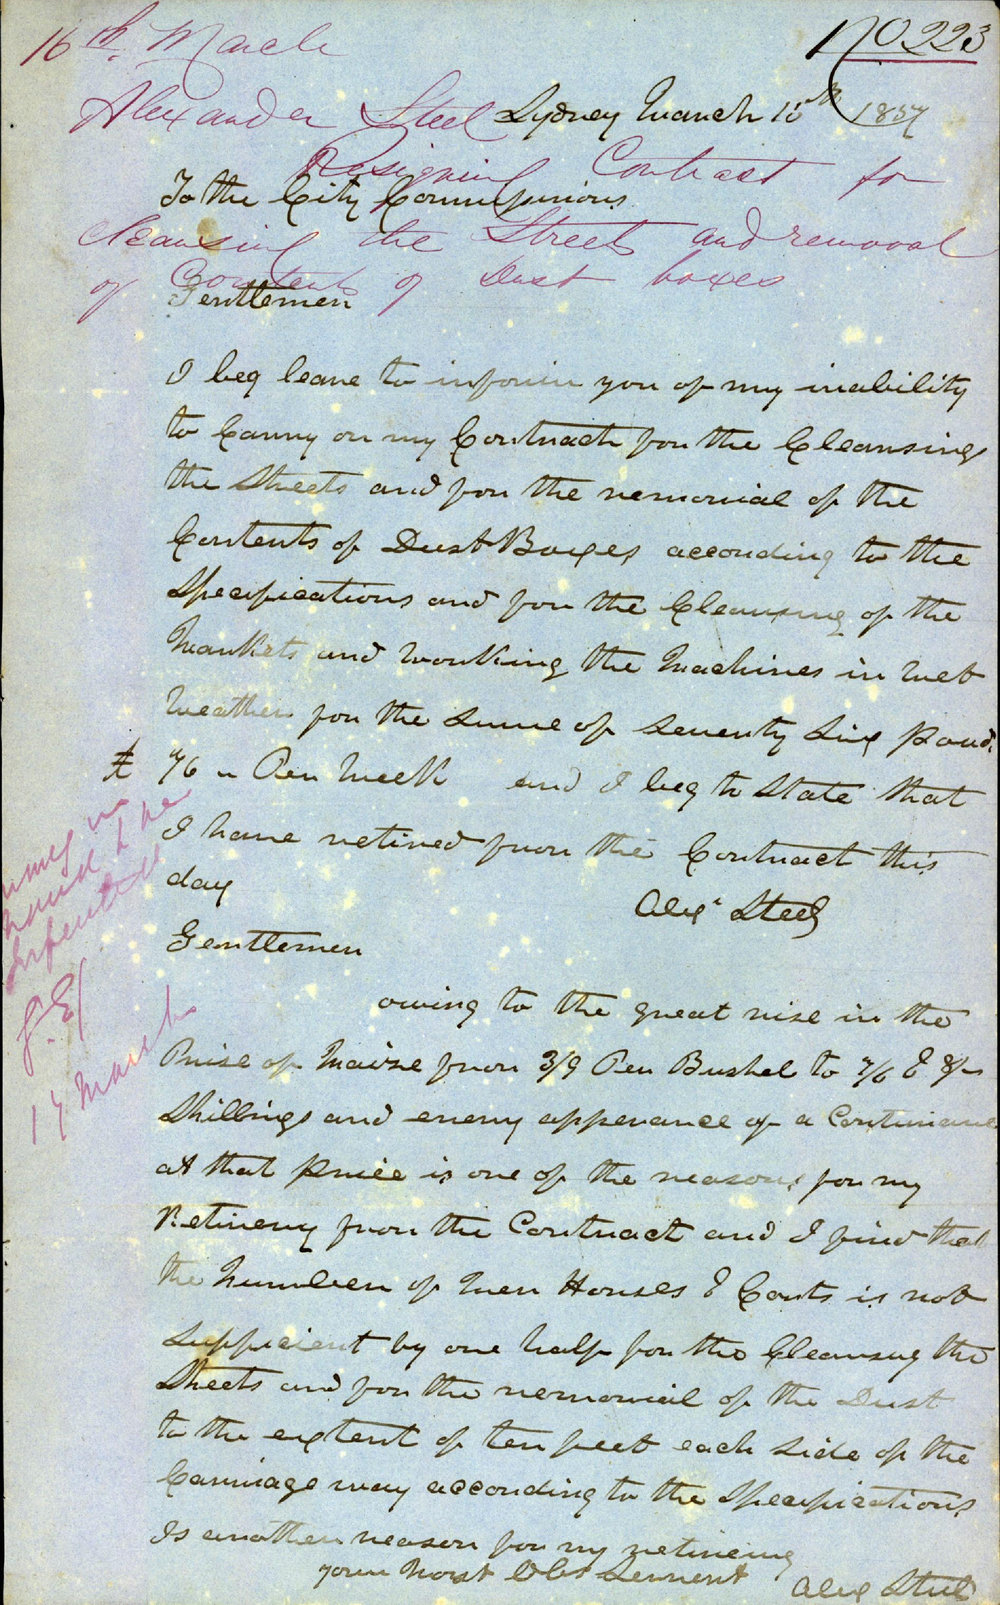 No 223
16th March
Alexander Steel
Resigning Contract for
cleansing the Streets and removal
of Contents of Dust boxes
Sydney March 15th 1857
To the City Commissinors
Gentlemen
I beg leave to inform you of my inability
to Carry on my Contract for the Cleansing
the Streets and for the removial of the
Contents of Dust Boxes according to the
Specifications and for the Cleansing of the
Markets and working the Machines in wet
Weather for the Sume of Seventy Six Pound
£ 76 " Per Week and I beg to State that
I have retired from the Contract this
day
Alexr Steel
Gentlemen
owing to the great rise in the
Prise of Maize from 3/9 Per Bushel to 7/6 & 8/-
Shillings and every apperance of a Continance
at that Price is one of the reasons for my
Retireny from the Contract and I find that
the Number of Men Horses & Carts is not
Sufficient by one half for the Cleansing the
Streets and for the removial of the Dust
to the extent of ten feet each Side of the
Carriage way according to the Specifications
Is another reason for my retireing
your most Obt Servent
Alex Steel
in
hand to be
17 March